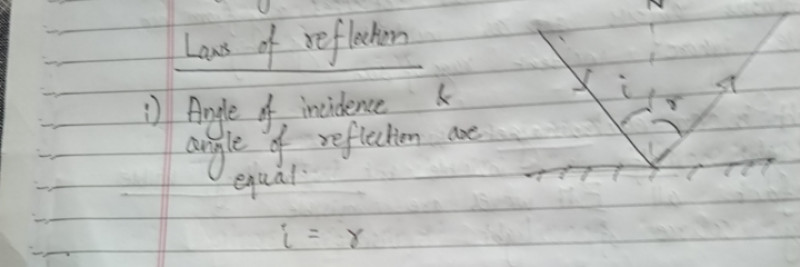 Laws of reflection
N
i) Angle of incidence &
angle of reflection are
equal.
i r
i = r